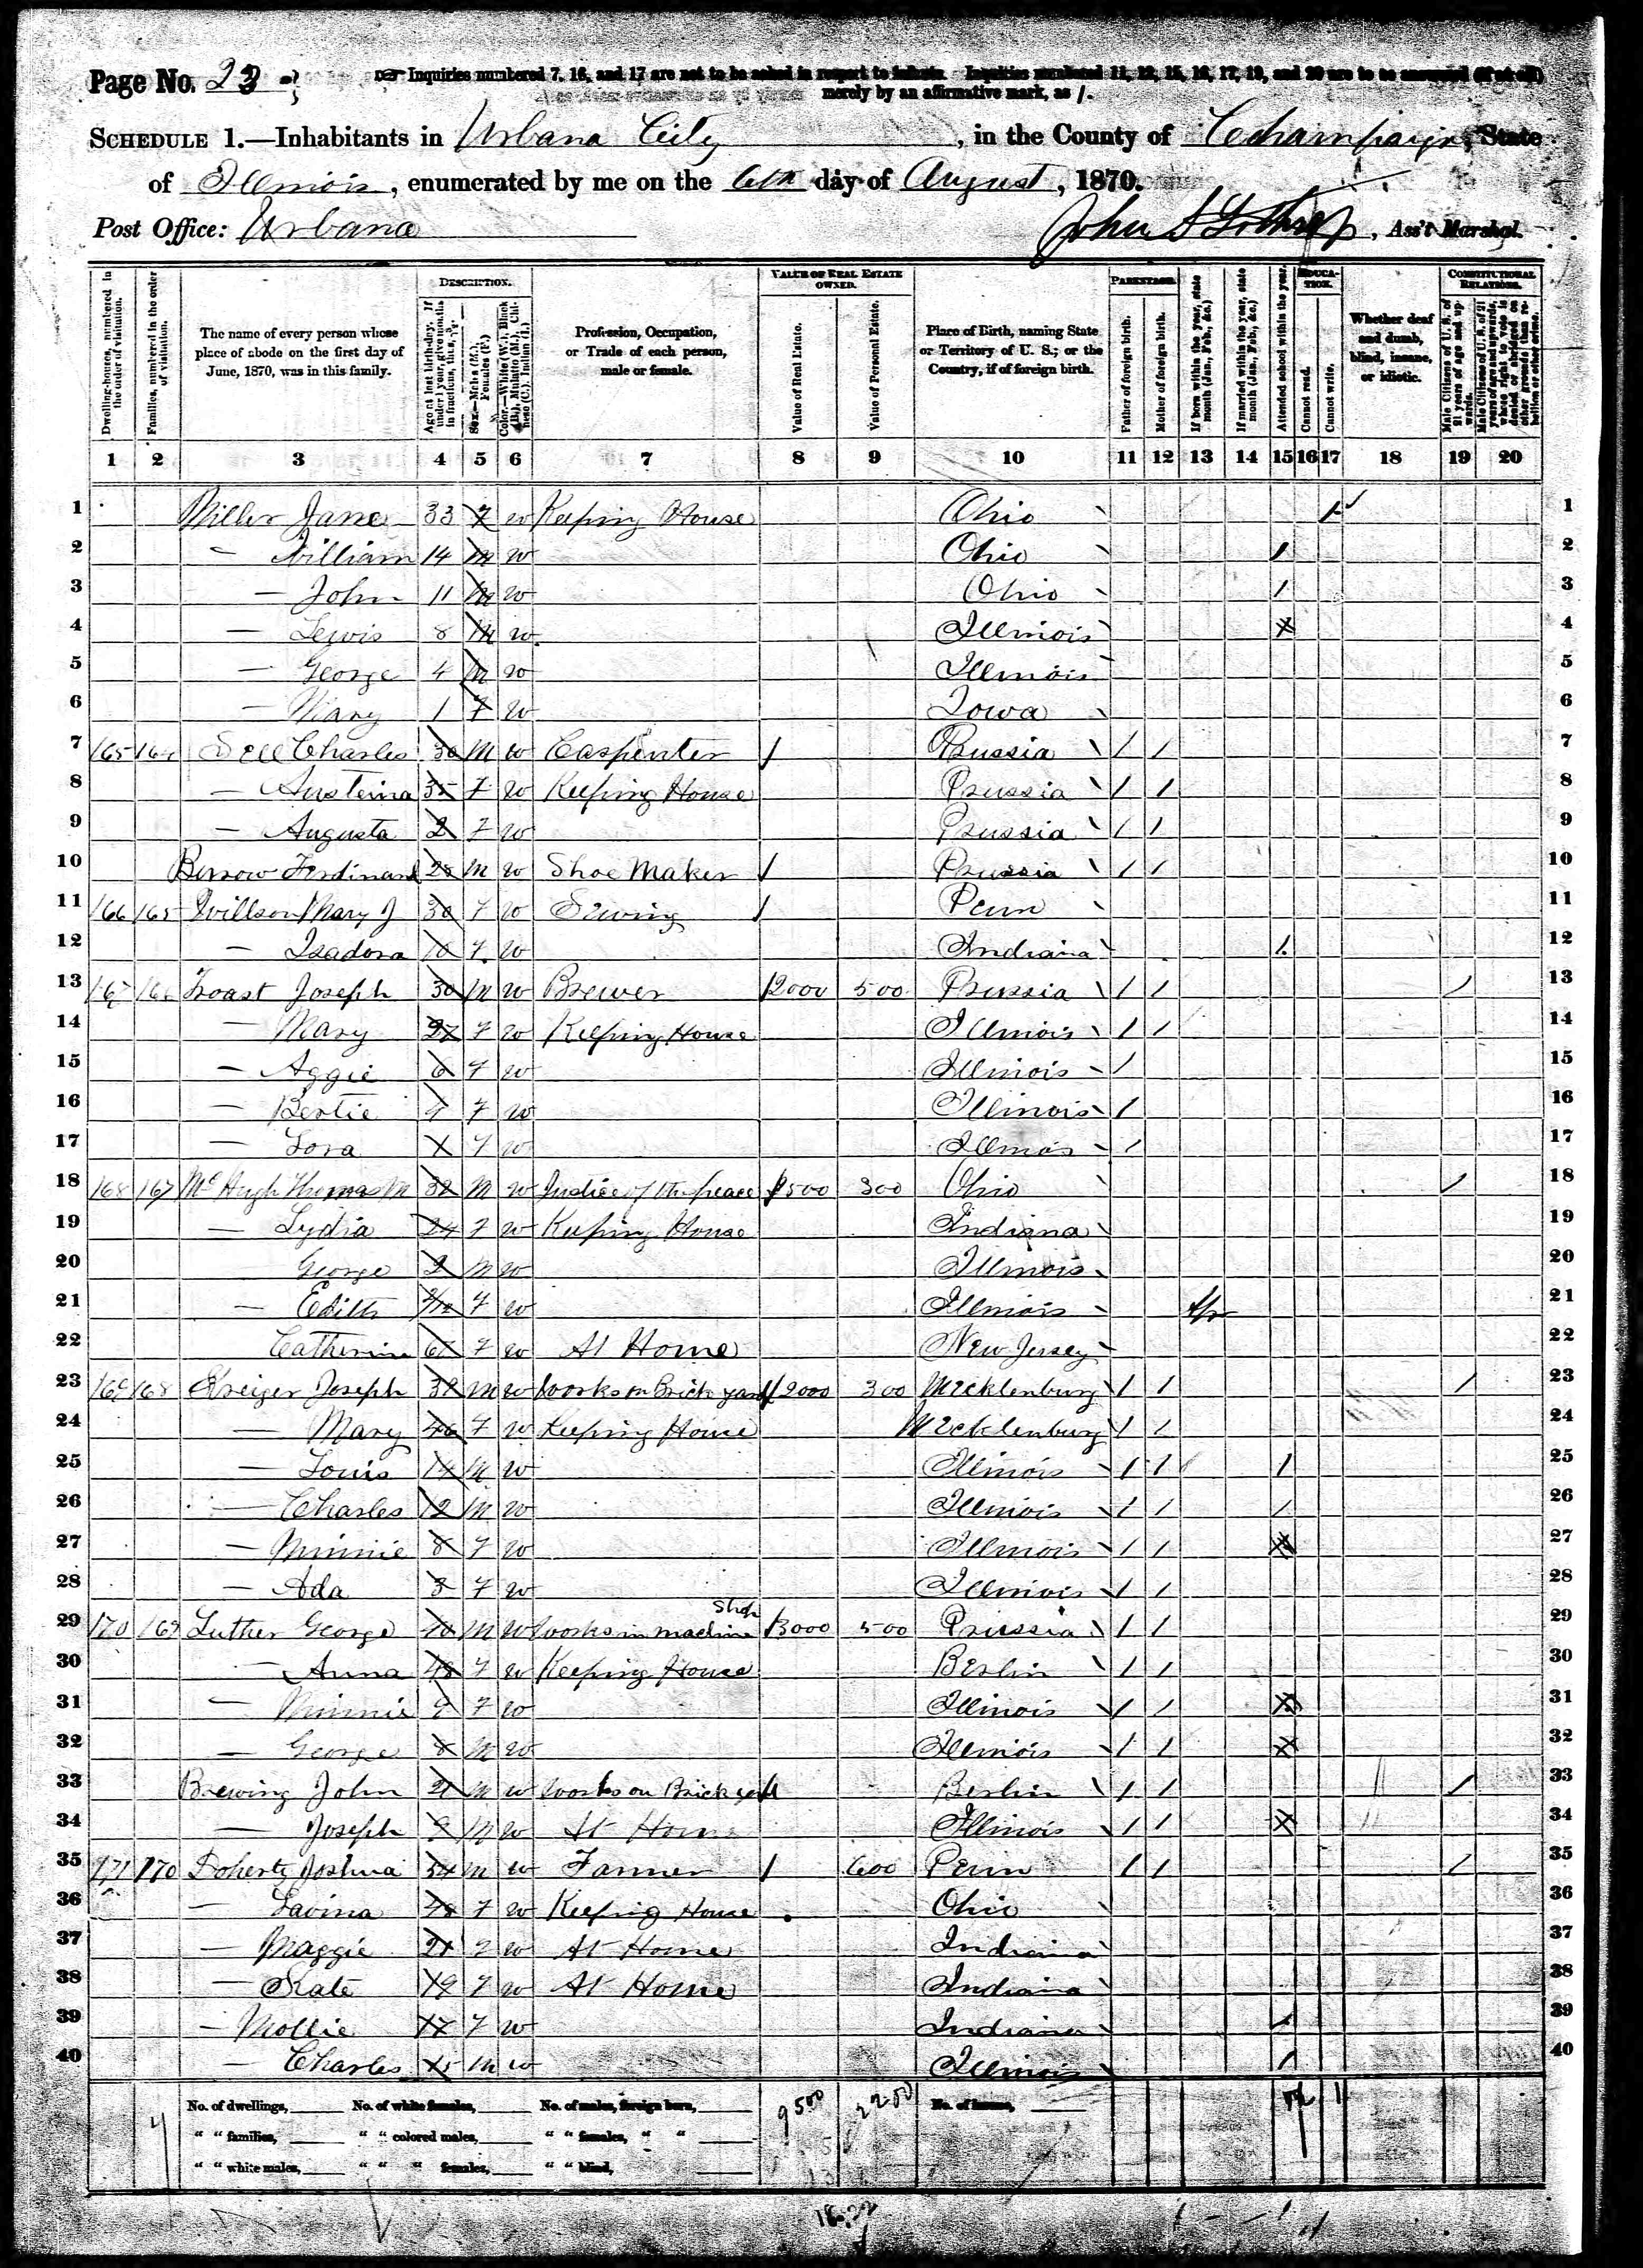 Page No. 23
Inquiries numbered 7, 16, and 17 are not to be asked in respect to infants. Inquiries numbered 11, 12, 15, 16, 17, 19, and 20 are to be answered (if at all)
merely by an affirmative mark, as /.
SCHEDULE 1.—Inhabitants in Urbana City, in the County of Champaign, State
of Illinois, enumerated by me on the 6th day of August, 1870.
Post Office: Urbana
John S Lothrop, Ass't Marshal.
Dwelling-houses, numbered in the order of visitation.
Families, numbered in the order of visitation.
The name of every person whose place of abode on the first day of June, 1870, was in this family.
DESCRIPTION.
Age at last birth-day. If under 1 year, give months in fractions, thus, 3/12.
Sex.—Males (M.), Females (F.)
Color.—White (W.), Black (B.), Mulatto (M.), Chinese (C.), Indian (I.)
Profession, Occupation, or Trade of each person, male or female.
VALUE OF REAL ESTATE OWNED.
Value of Real Estate.
Value of Personal Estate.
Place of Birth, naming State or Territory of U. S.; or the Country, if of foreign birth.
PARENTAGE.
Father of foreign birth.
Mother of foreign birth.
If born within the year, state month (Jan., Feb., &c.)
If married within the year, state month (Jan., Feb., &c.)
Attended school within the year.
EDUCATION.
Cannot read.
Cannot write.
Whether deaf and dumb, blind, insane, or idiotic.
CONSTITUTIONAL RELATIONS.
Male Citizens of U. S. of 21 years of age and upwards.
Male Citizens of U. S. of 21 years of age and upwards, whose right to vote is denied or abridged on other grounds than rebellion or other crime.
1 2 3 4 5 6 7 8 9 10 11 12 13 14 15 16 17 18 19 20
1 Miller Jane 33 F W Keeping House Ohio / 1
2 — William 14 M W Ohio / 2
3 — John 11 M W Ohio / 3
4 — Lewis 8 M W Illinois 4
5 — George 4 M W Illinois 5
6 — Mary 1 F W Iowa 6
7 165 164 Sell Charles 30 M W Carpenter Prussia / / 7
8 — Austeina 35 F W Keeping House Prussia / / 8
9 — Augusta 2 F W Prussia / / 9
10 Berrow Ferdinand 28 M W Shoe Maker Prussia / / 10
11 166 165 Willson Mary J 30 F W Sewing Penn 11
12 — Isadora 10 F W Indiana / 12
13 167 166 Froast Joseph 30 M W Brewer 2000 500 Prussia / / / 13
14 — Mary 27 F W Keeping House Illinois / / 14
15 — Aggie 6 F W Illinois / 15
16 — Bertie F W Illinois / 16
17 — Lora F W Illinois / 17
18 168 167 McHugh Thomas M 32 M W Justice of the peace 2500 300 Ohio / 18
19 — Lydia 24 F W Keeping House Indiana 19
20 George 2 M W Illinois 20
21 — Edith F W Illinois Apr 21
22 Catherine F W At Home New Jersey 22
23 169 168 Kreiger Joseph 39 M W Works on Brick yard 2000 300 Mecklenburg / / / 23
24 — Mary 46 F W Keeping House Mecklenburg / / 24
25 — Louis 14 M W Illinois / / / 25
26 — Charles 12 M W Illinois / / / 26
27 — Minnie 8 F W Illinois / / 27
28 — Ada 3 F W Illinois / / 28
29 170 169 Luther George M W Works in machine Shop 3000 500 Prussia / / 29
30 — Anna 48 F W Keeping House Berlin / / 30
31 — Minnie 9 F W Illinois / / 31
32 — George 8 M W Illinois / / 32
33 Brewing John 21 M W Works on Brick yard Berlin / / / 33
34 — Joseph 9 M W At Home Illinois / / 34
35 171 170 Doherty Joshua 54 M W Farmer 600 Penn / / / 35
36 — Lavina 48 F W Keeping House Ohio 36
37 — Maggie 21 F W At Home Indiana 37
38 — Kate 19 F W At Home Indiana 38
39 — Mollie 17 F W Indiana / 39
40 — Charles 15 M W Illinois / 40
No. of dwellings, No. of white females, No. of males, foreign born, 9500 2200 No. of insane,
" " families, " " colored males, " " females, " "
" " white males, " " " females, " " blind,